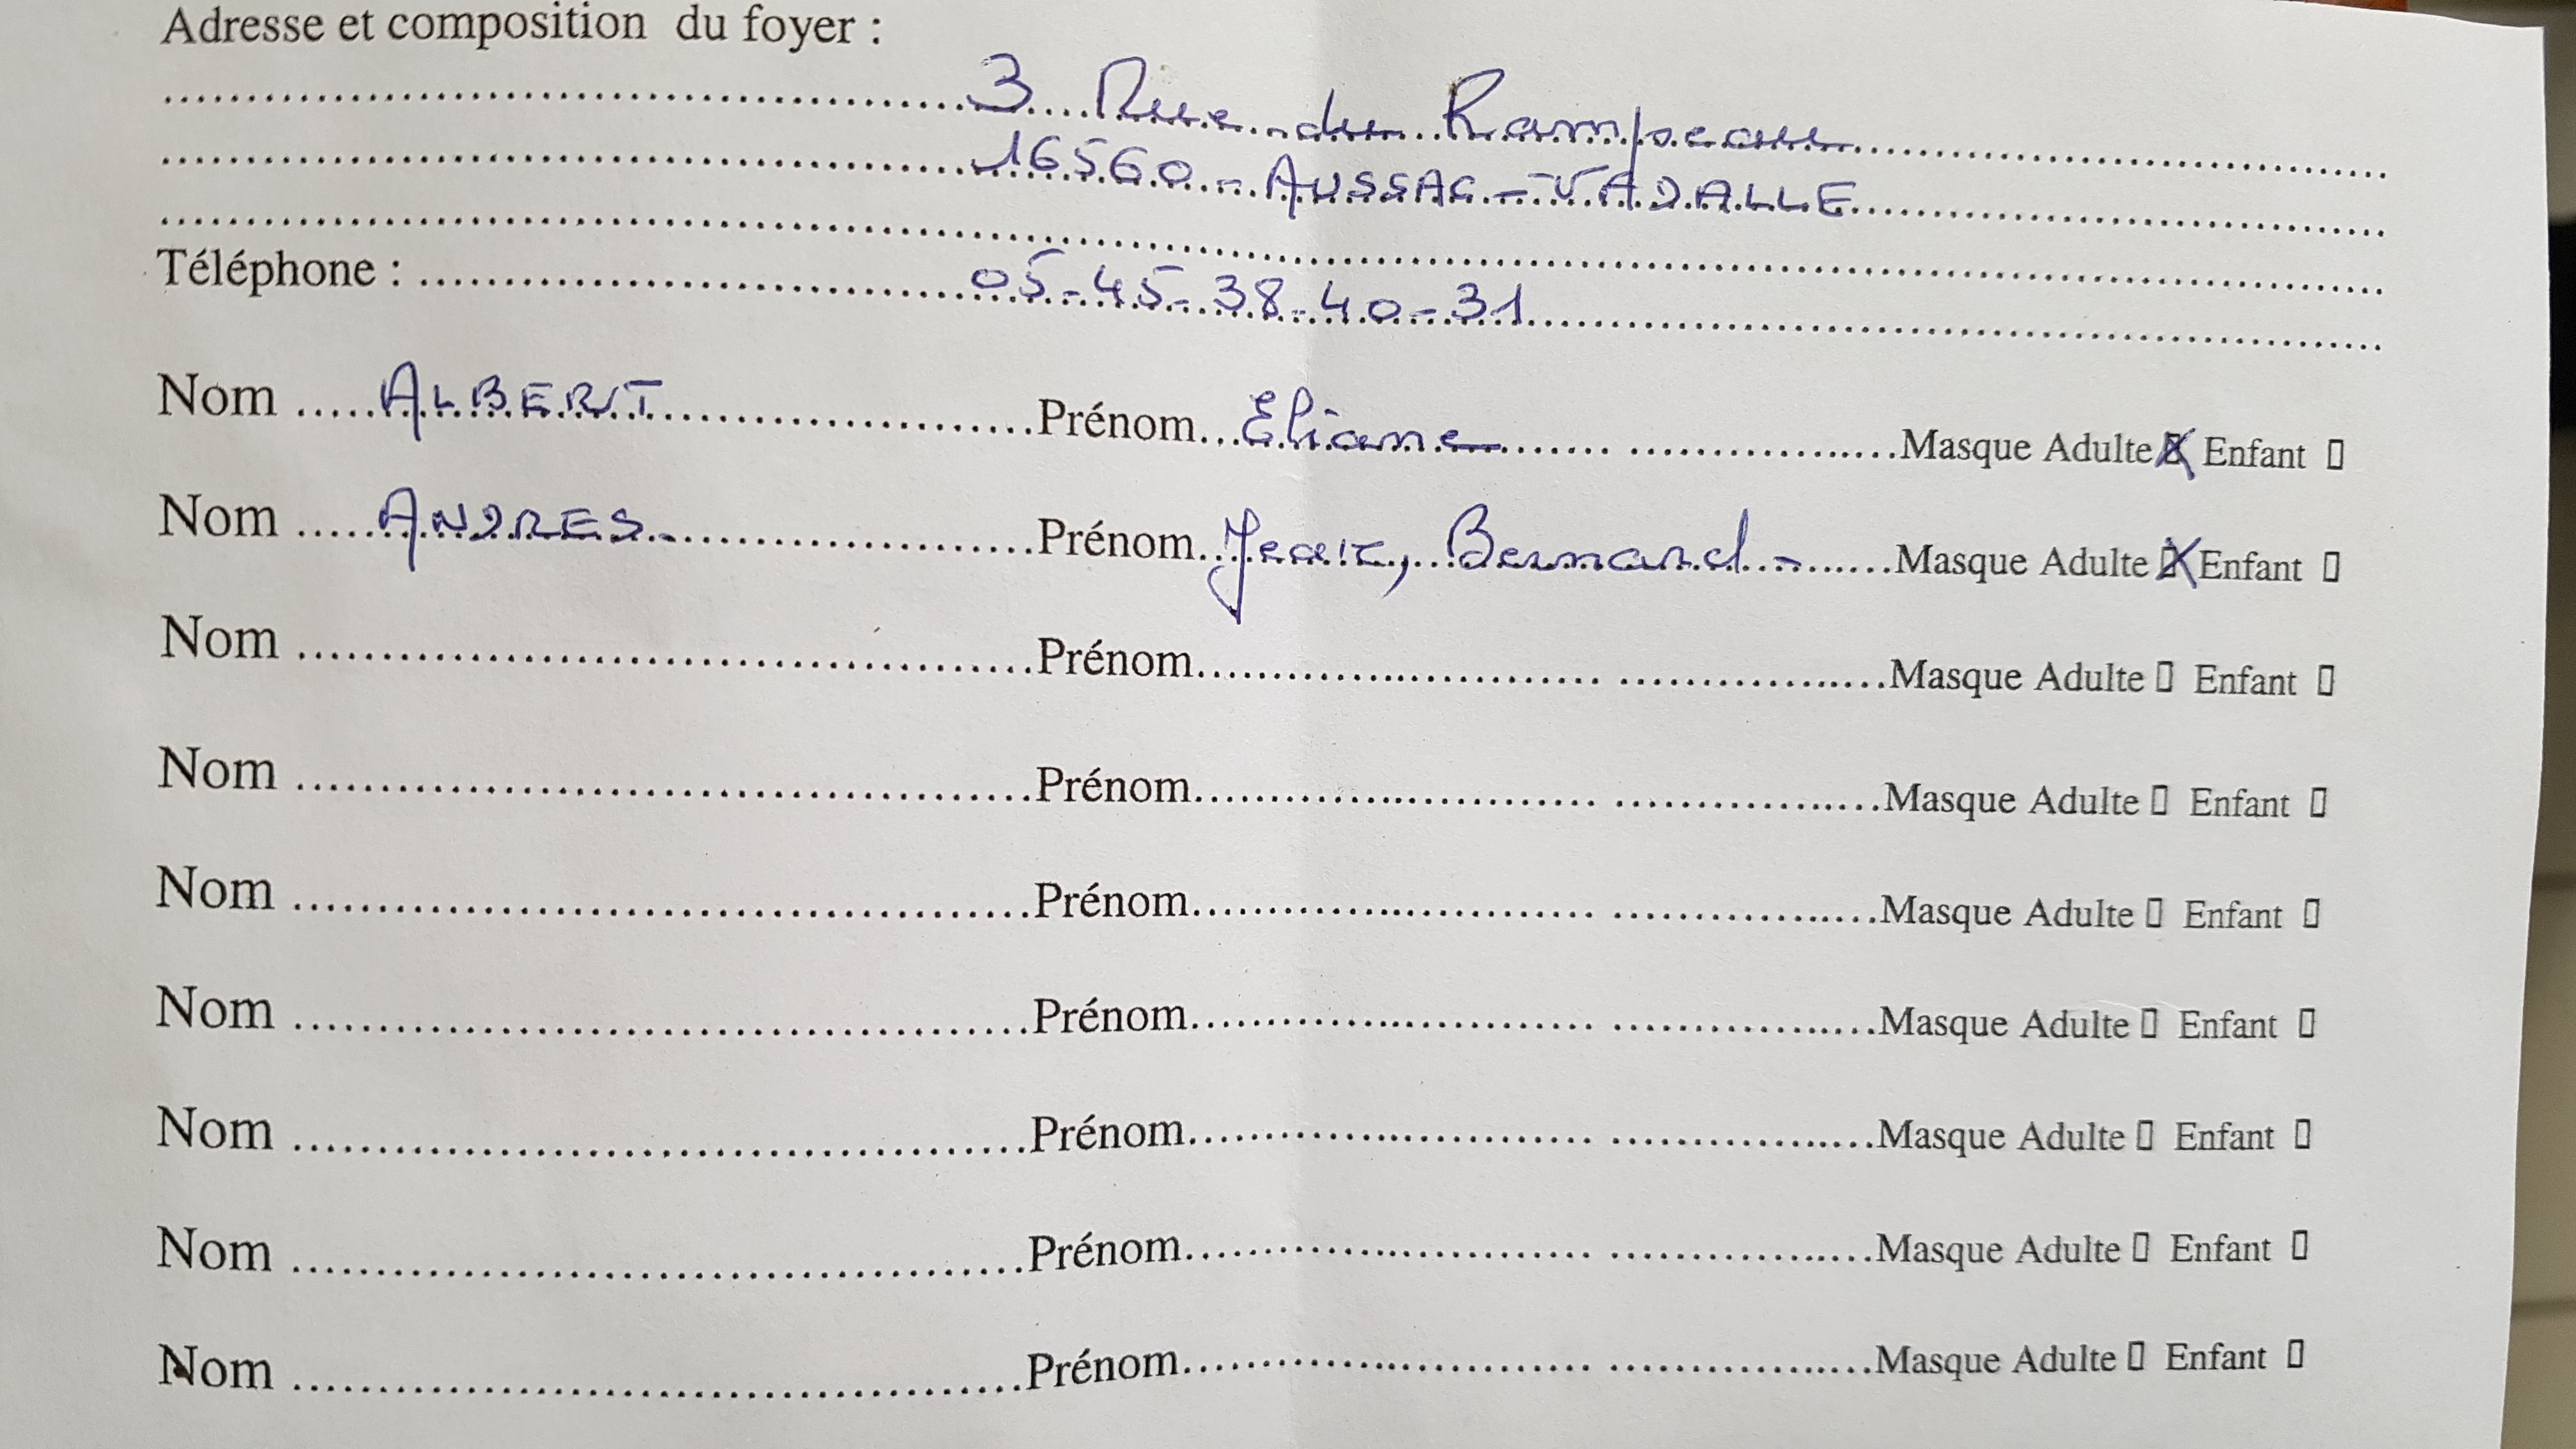 Adresse et composition du foyer :
3 Rue du Rampeau
16560 - AUSSAC - VADALLE
Téléphone : 05-45-38-40-31
Nom ALBERT Prénom Eliane Masque Adulte ☒ Enfant ▯
Nom ANDRES- Prénom Jean, Bernard - Masque Adulte ☒ Enfant ▯
Nom Prénom Masque Adulte ▯ Enfant ▯
Nom Prénom Masque Adulte ▯ Enfant ▯
Nom Prénom Masque Adulte ▯ Enfant ▯
Nom Prénom Masque Adulte ▯ Enfant ▯
Nom Prénom Masque Adulte ▯ Enfant ▯
Nom Prénom Masque Adulte ▯ Enfant ▯
Nom Prénom Masque Adulte ▯ Enfant ▯